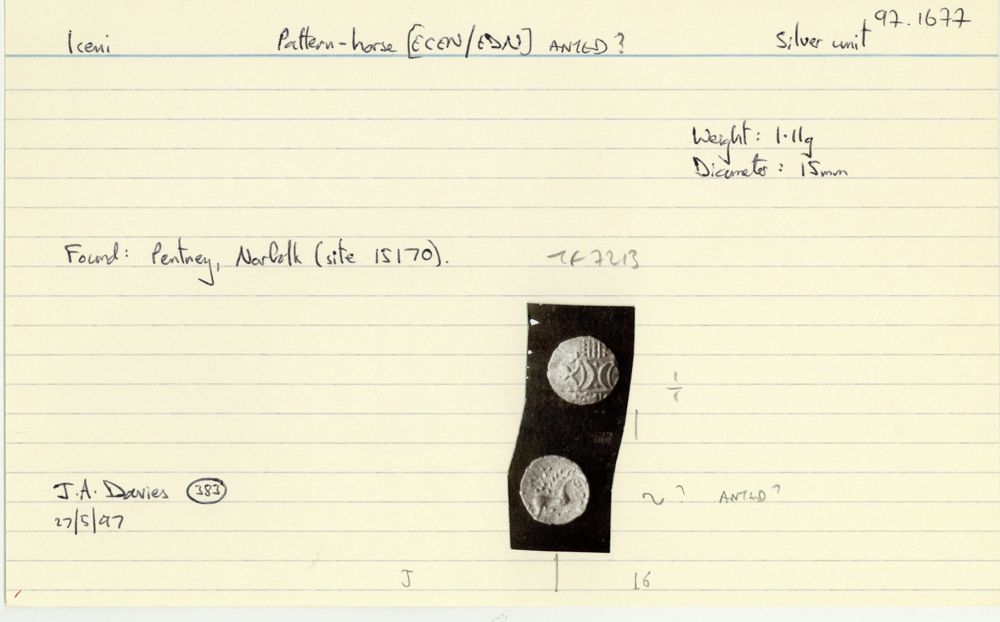 97.1677
Iceni Pattern-horse [ECEN/EDN] ANTED? Silver unit
Weight: 1.11g
Diameter: 15mm
Found: Pentney, Norfolk (site 15170). TF 7213
J.A. Davies 383
ANTED?
27/5/97
J 16